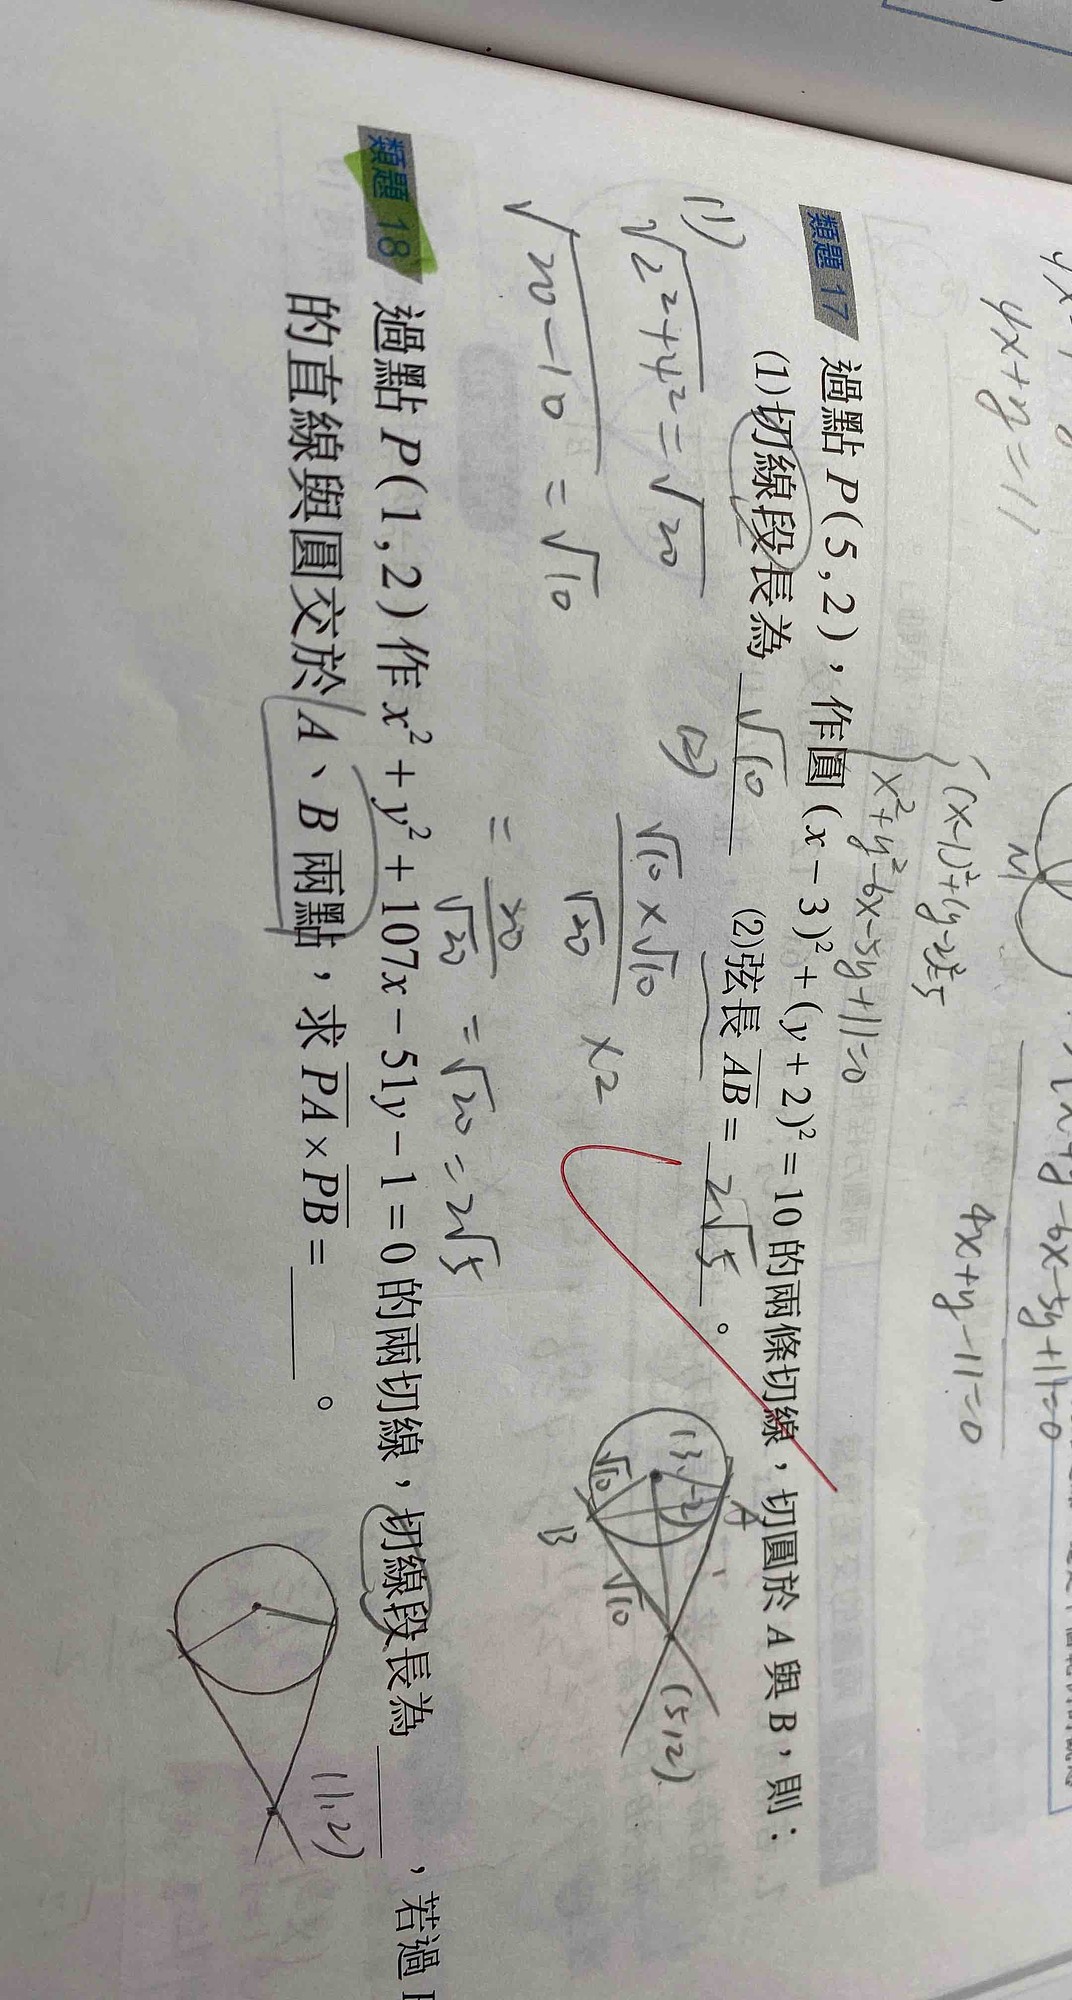 4x+y=11
{(x-1)²+(y-2)²=5
x²+y²-6x-5y+11=0
-6x-5y+11=0
4x+y-11=0
M
類題 17 過點 P(5,2)，作圓 (x-3)²+(y+2)²=10 的兩條切線，切圓於 A 與 B，則：
(1)切線段長為 √10 (2)弦長 AB = 2√5 。
(1) √2²+4² = √20
√20-10 = √10
(2) √10×√10/√20 ×2
= 20/√20 = √20 = 2√5
A
(3,-2)
√10
B
√10
(5,2)
類題 18 過點 P(1,2) 作 x²+y²+107x-51y-1=0 的兩切線，切線段長為 ，若過
的直線與圓交於 A、B 兩點，求 PA×PB = 。
(1,2)